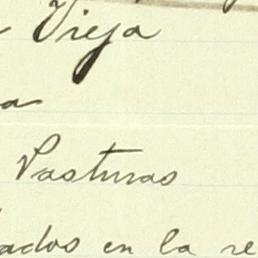 Vieja
a
Pasturas
ados en la re